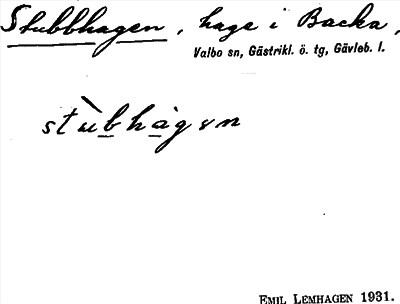 Stubbhagen, hage i Backa,
Valbo sn, Gästrikl. ö. tg, Gävleb. l.
stùbhàgɤn
EMIL LEMHAGEN 1931.